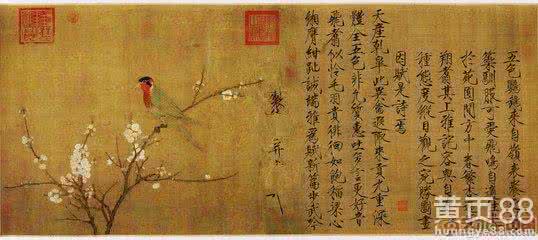 五色鸚鵡來自嶺表養之
籞馴服可愛飛鳴自適
於苑囿間方中春繁杏
翔翥其上雅詫容與自有
種態度縱目觀之宛勝圖畫
因賦是詩焉
天產乾皋此異禽遐陬來貢九重深
體全五色非凡質惠吐多言更好音
飛翥似憐毛羽貴徘徊如飽稻粱心
緗膺紺趾誠端雅為賦新篇步武吟
製
并
黄页88
huangye88.com